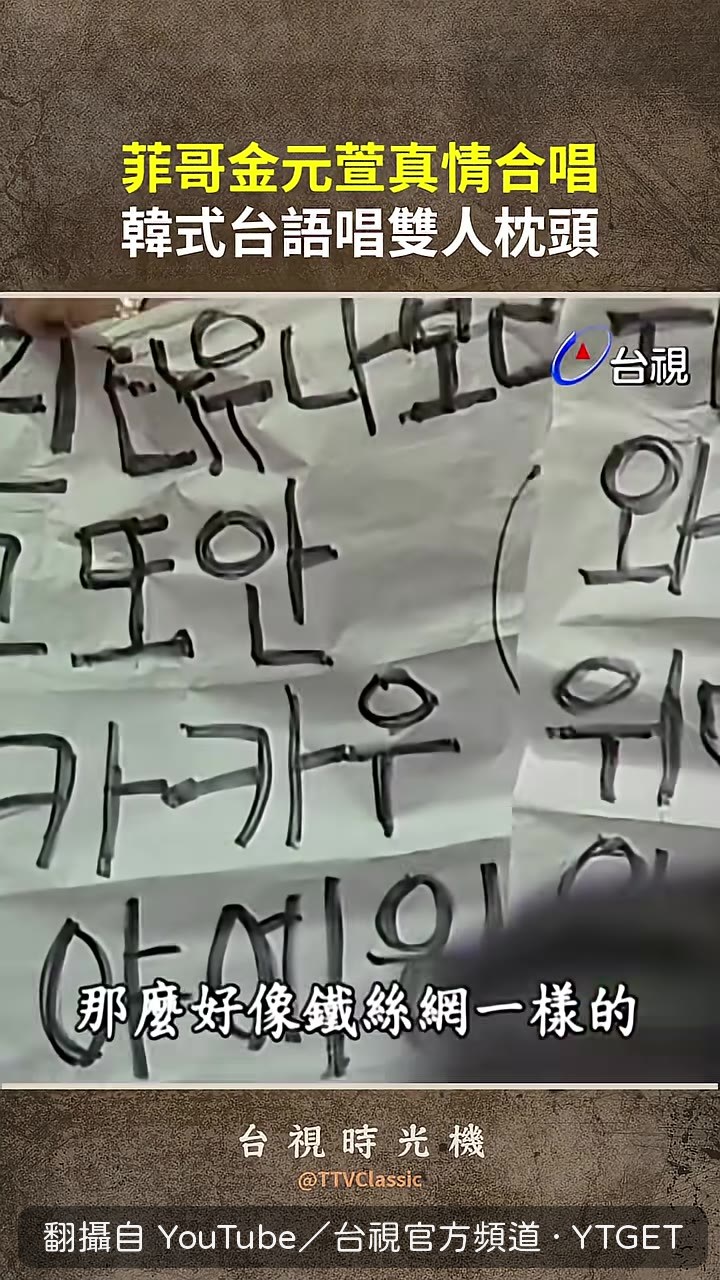 菲哥金元萱真情合唱
韓式台語唱雙人枕頭
台視
유나보다
와
또안
카카우
위
아예우
那麼好像鐵絲網一樣的
台視時光機
@TTVClassic
翻攝自 YouTube／台視官方頻道・YTGET